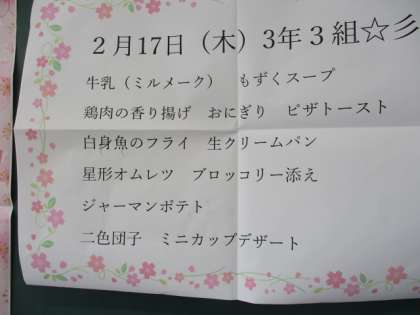 ２月17日（木）3年３組☆彡
牛乳（ミルメーク）　もずくスープ
鶏肉の香り揚げ　おにぎり　ピザトースト
白身魚のフライ　生クリームパン
星形オムレツ　ブロッコリー添え
ジャーマンポテト
二色団子　ミニカップデザート